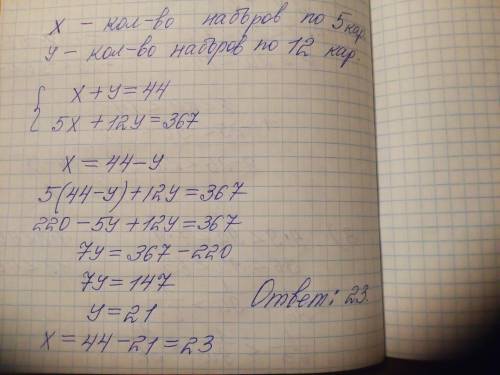 х – кол-во наборов по 5 кар.
у – кол-во наборов по 12 кар.
{ х + у = 44
5х + 12у = 367
х = 44 – у
5(44 – у) + 12у = 367
220 – 5у + 12у = 367
7у = 367 – 220
7у = 147
у = 21
х = 44 – 21 = 23
Ответ: 23.